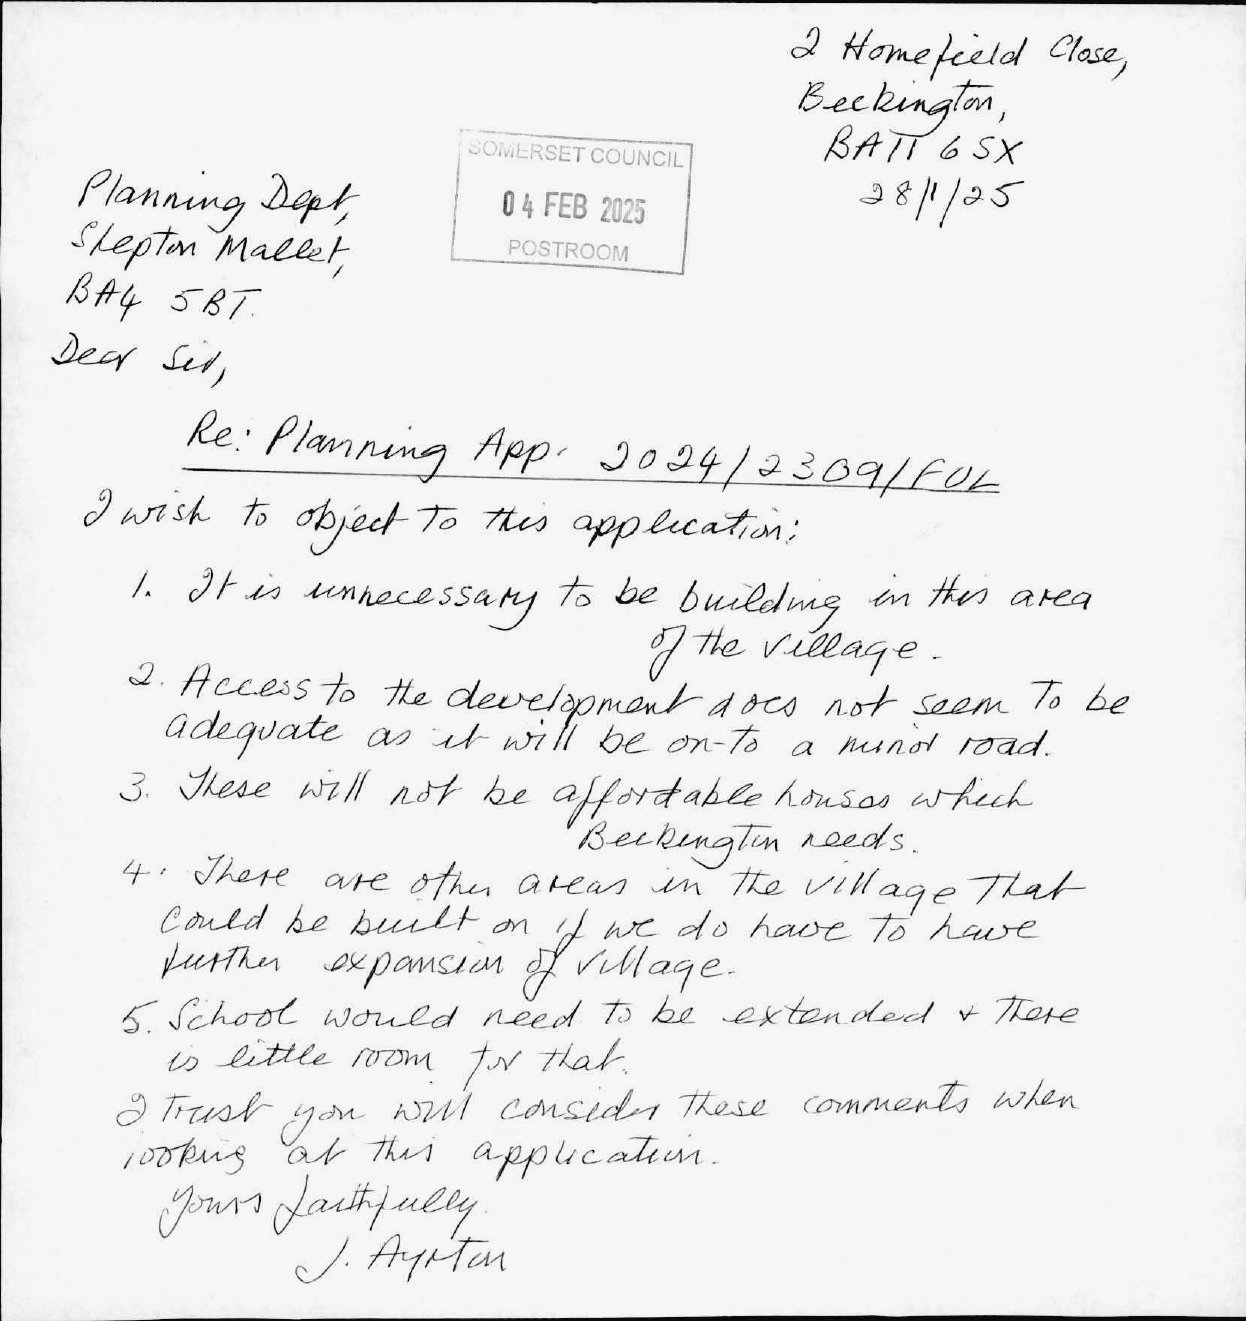 2 Homefield Close,
Beckington,
BA11 6SX
28/1/25
SOMERSET COUNCIL
04 FEB 2025
POSTROOM
Planning Dept,
Shepton Mallet,
BA4 5BT.
Dear Sir,
Re: Planning App. 2024/2309/FUL
I wish to object to this application:
1. It is unnecessary to be building in this area
of the village.
2. Access to the development does not seem to be
adequate as it will be on-to a minor road.
3. These will not be affordable houses which
Beckington needs.
4. There are other areas in the village that
could be built on if we do have to have
further expansion of village.
5. School would need to be extended + there
is little room for that.
I trust you will consider these comments when
looking at this application.
Yours faithfully
J. Ayrton